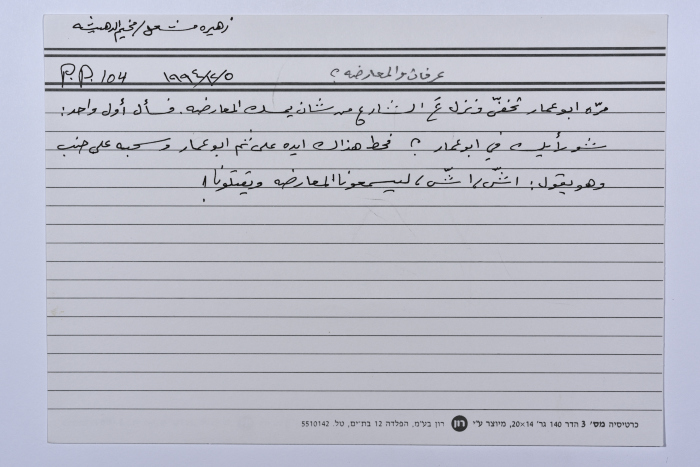 زهيره مشعل / مخيم الدهيشه
عرفات والمعارضه؟ ١٩٩٤/٢/٥ P.P. 104
مرّه ابو عمار تخفّى ونزل عَ الشارع مد شان يمسك المعارضه. فسأل أول واحد:
شو رأيك في ابو عمار ؟ فحط هذاك ايده على ثم ابو عمار وسحبه على جنب
وهو يقول: اشّ / اشّ / ليسمعونا المعارضه ويقتلونا!
כרטיסיה מס׳ 3 הדר 140 גר׳ 20×14, מיוצר ע״י רון רון בע״מ, הפלדה 12 בת־ים, טל. 5510142